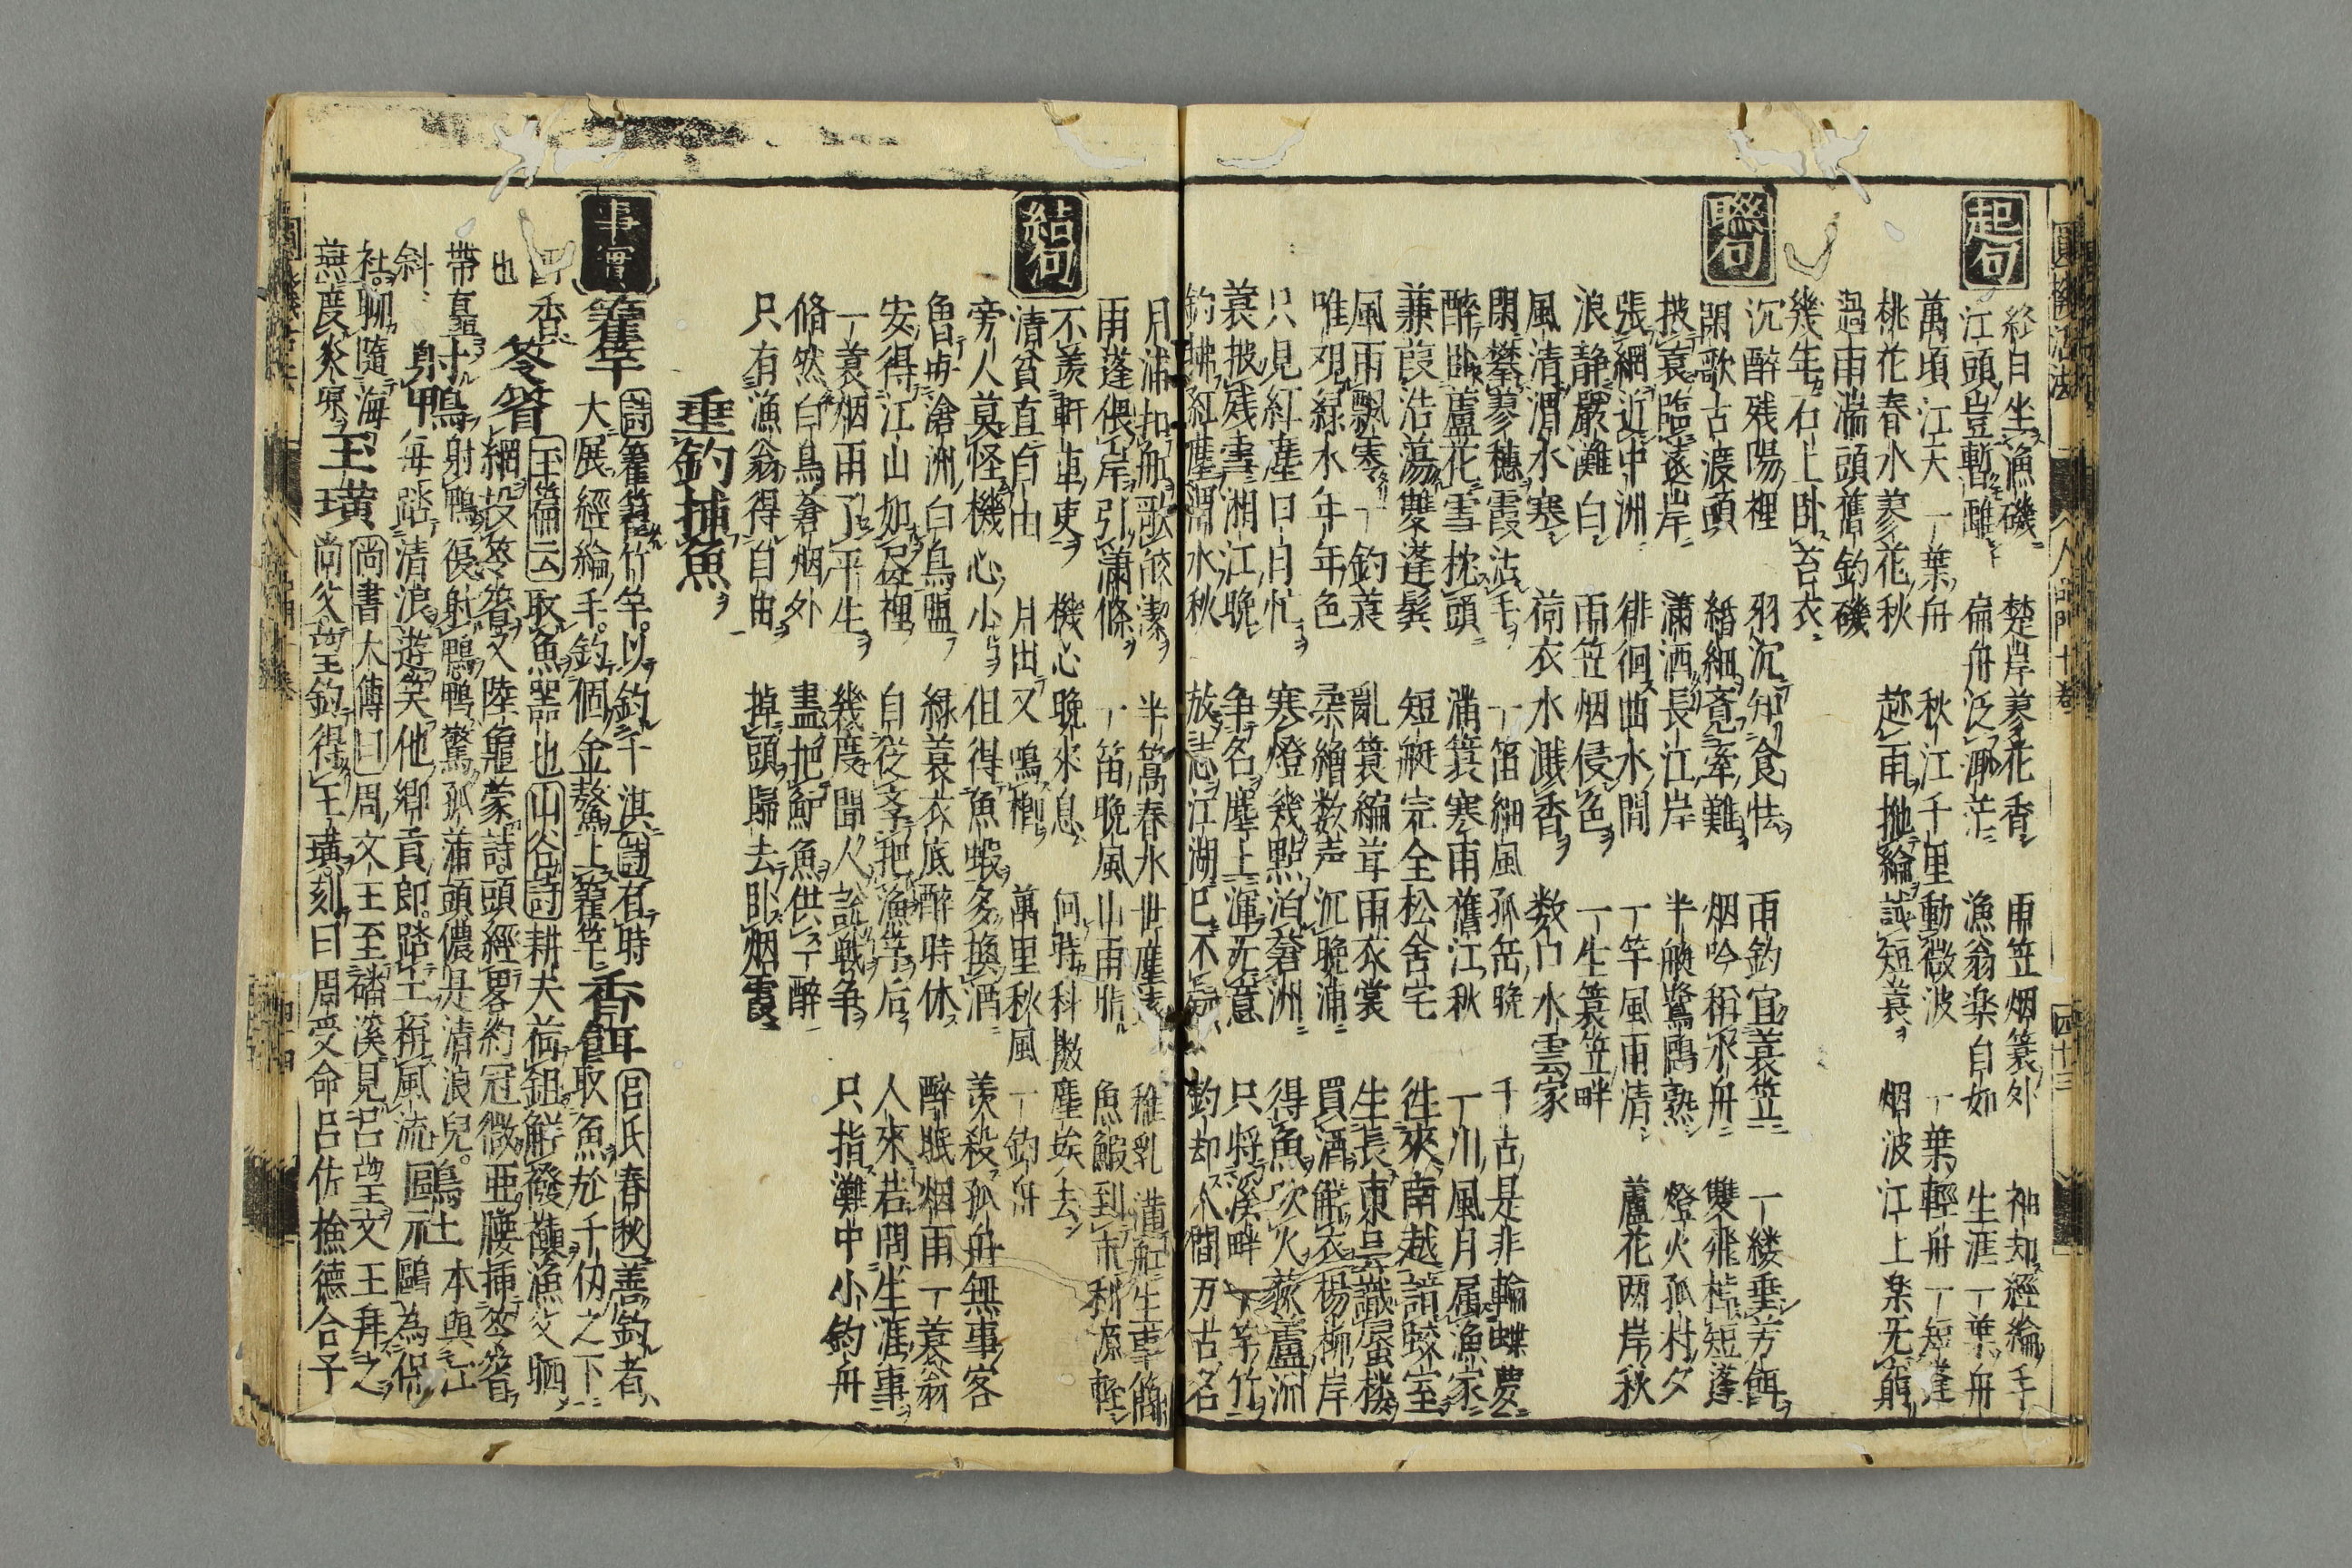 起句
終日坐漁磯 楚岸蓼花香 雨笠烟簑外 神却經綸手
江頭豈暫離 扁舟泛渺茫 漁翁楽自如 生涯一葉舟
萬頃江天一葉舟 秋江千里動微波 一葉輕舟一短蓬
桃花春水蓼花秋 趂雨拖綸試短蓑 烟波江上楽无窮
過雨湍頭舊釣磯
幾年石上卧苔衣
聯句
沉醉残陽裡 羽沉知食怯 雨釣宜蓑笠 一縷垂芳餌
閑歌古渡頭 緡細覚牽難 烟吟稱釆舟 雙飛桂短蓬
披蓑臨遠岸 瀟洒長江岸 半艇鷺鴎熟 燈火孤村夕
張網近中洲 徘徊曲水間 一竿風雨清 蘆花两岸秋
浪静嚴灘白 雨笠烟侵色 一生簑笠畔
風清渭水寒 荷衣水濺香 数口水雲家
閑攀蓼穗霞沾手 一笛細風孤岳晩 千古是非輪蝶夢
醉卧蘆花雪枕頭 満簑寒雨舊江秋 一川風月属漁家
蒹葭浩蕩雙蓬鬂 短艇完全松舎宅 徃來南越諳蛟室
風雨飄寒一釣蓑 亂簑編茸雨衣裳 生長東呉識蜃楼
唯观緑水年年色 柔繒数声沉晩浦 買酒觧衣楊柳岸
只見紅塵日日忙 寒燈幾點泊蒼洲 得魚吹火荻蘆洲
蓑披残雪湘江晩 争名塵上渾无意 只將溪畔一竿竹
釣拂紅塵渭水秋 放志江湖已不 釣却人間万古名
月浦扣舷歌皎潔 半篙春水世塵 稚乳 生事簡
雨蓬偎岸引瀟條 一笛晩風山雨 魚鰕到市利源輕
結句
不羨軒車吏 機心晩來息 何時科撒塵埃去
清貧直自由 月出又鳴榔 萬里秋風一釣舟
旁人莫怪機心小 但得魚蝦多換酒 羨殺孤舟無事客
魯毋滄洲白鳥盟 緑蓑衣底醉時休 醉眠烟雨一蓑翁
安得江山如尽裡 自從支把漁竿后 人來若問生涯事
一蓑烟雨了平生 幾度聞人說戦争 只指灘中小釣舟
脩然白鳥蒼烟外 盡把鮓魚供一醉
只有漁翁得自由 掉頭歸去卧烟霞
垂釣捕魚
事實
籊竿 詩籊籊竹竿以釣于淇 詩有時 香餌 吕氏春秋善釣者
大展經綸手釣個金鰲上籊竿 取魚於千仭之下
香 笭箵 玉篇云取魚噐也山谷詩耕夫荷鉏觧襏襫漁父晒
也 網投笭箵又陸龜蒙詩頭經畧約冠微亜腰插笭箵
帶直 射鴨 射鴨復射鴨鴨驚孤蒲頭儂是清浪兒 鴎社 本與江
斜 毎踏清浪遊笑他郷貢郎踏土稱風流 鴎為保
社聊隨海 尚書大傳曰周文王至磻溪見吕望文王拜之
燕度炎凉 玉璜 尚父望釣得玉璜刻曰周受命吕佐檢德合于
圓機活法 人品門十巻 四十三